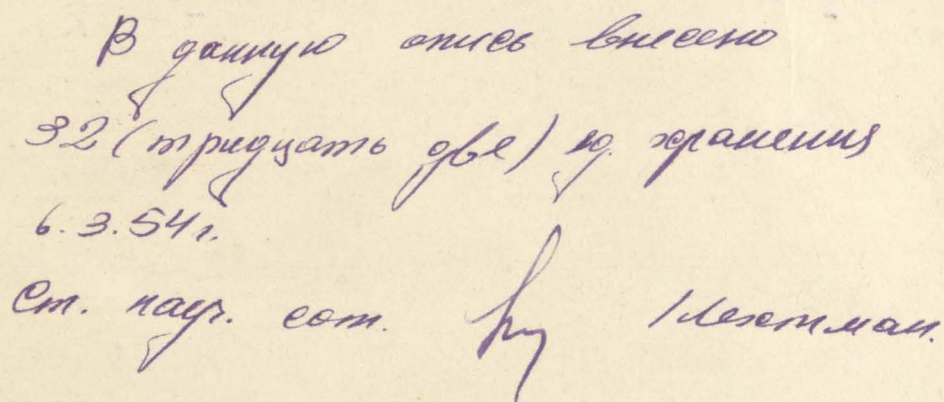 В данную опись внесено
32 (тридцать две) ед. хранения
6.3.54 г.
Ст. науч. сот.